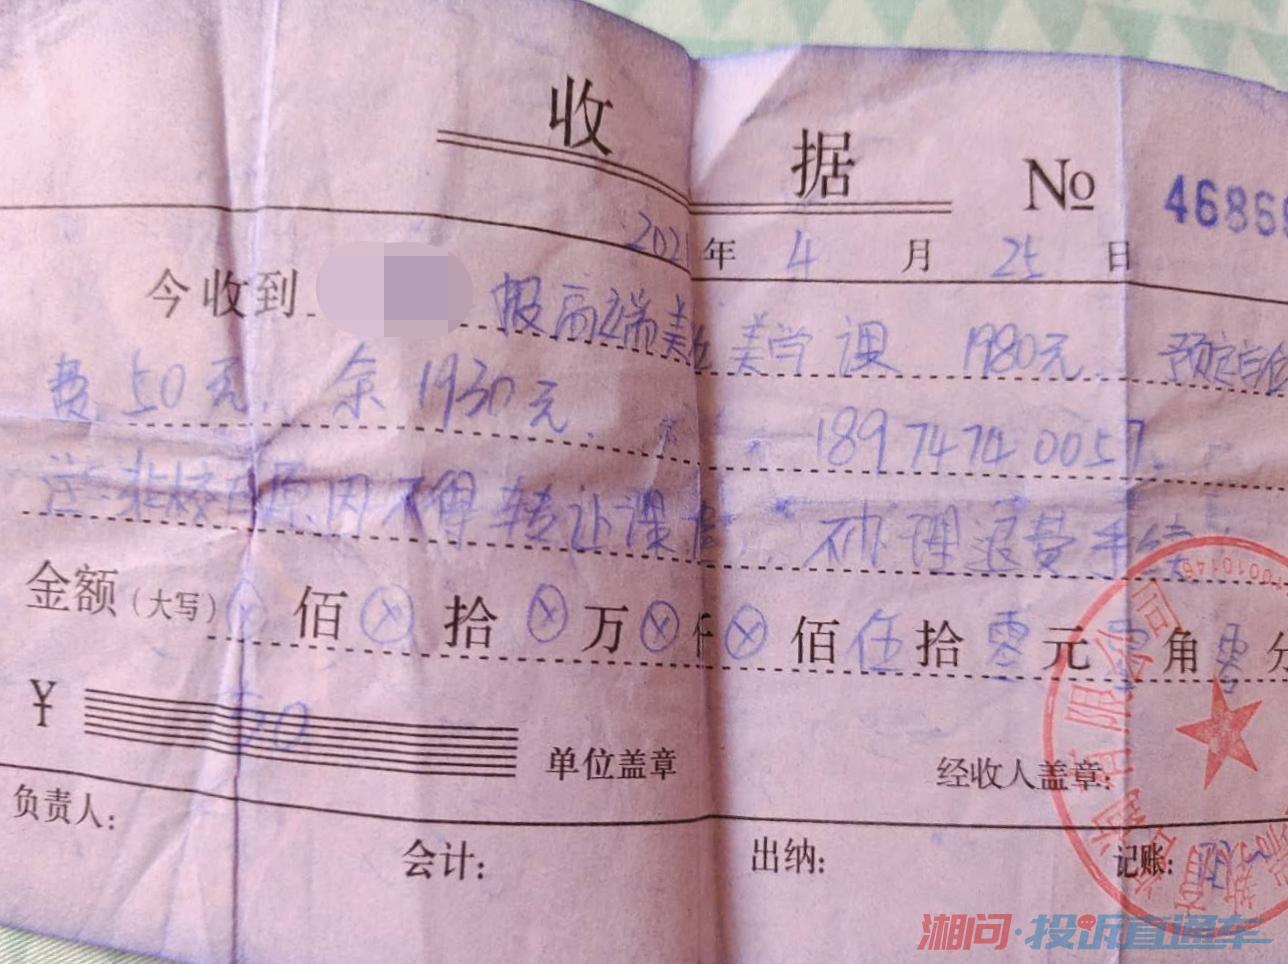 收 据 № 4686
2021年 4月 25日
今收到 报高端美 美学课 1980元. 预定
费 50元. 余 1930元. 18974740057.
注:非校 原因不得转让课 . 不办理退费手续
金额(大写) ⊗佰⊗拾⊗万⊗仟⊗佰伍拾零元零角零分
¥ 50 单位盖章 经收人盖章:
负责人: 会计: 出纳: 记账:
有限公司
湘问·投诉直通车